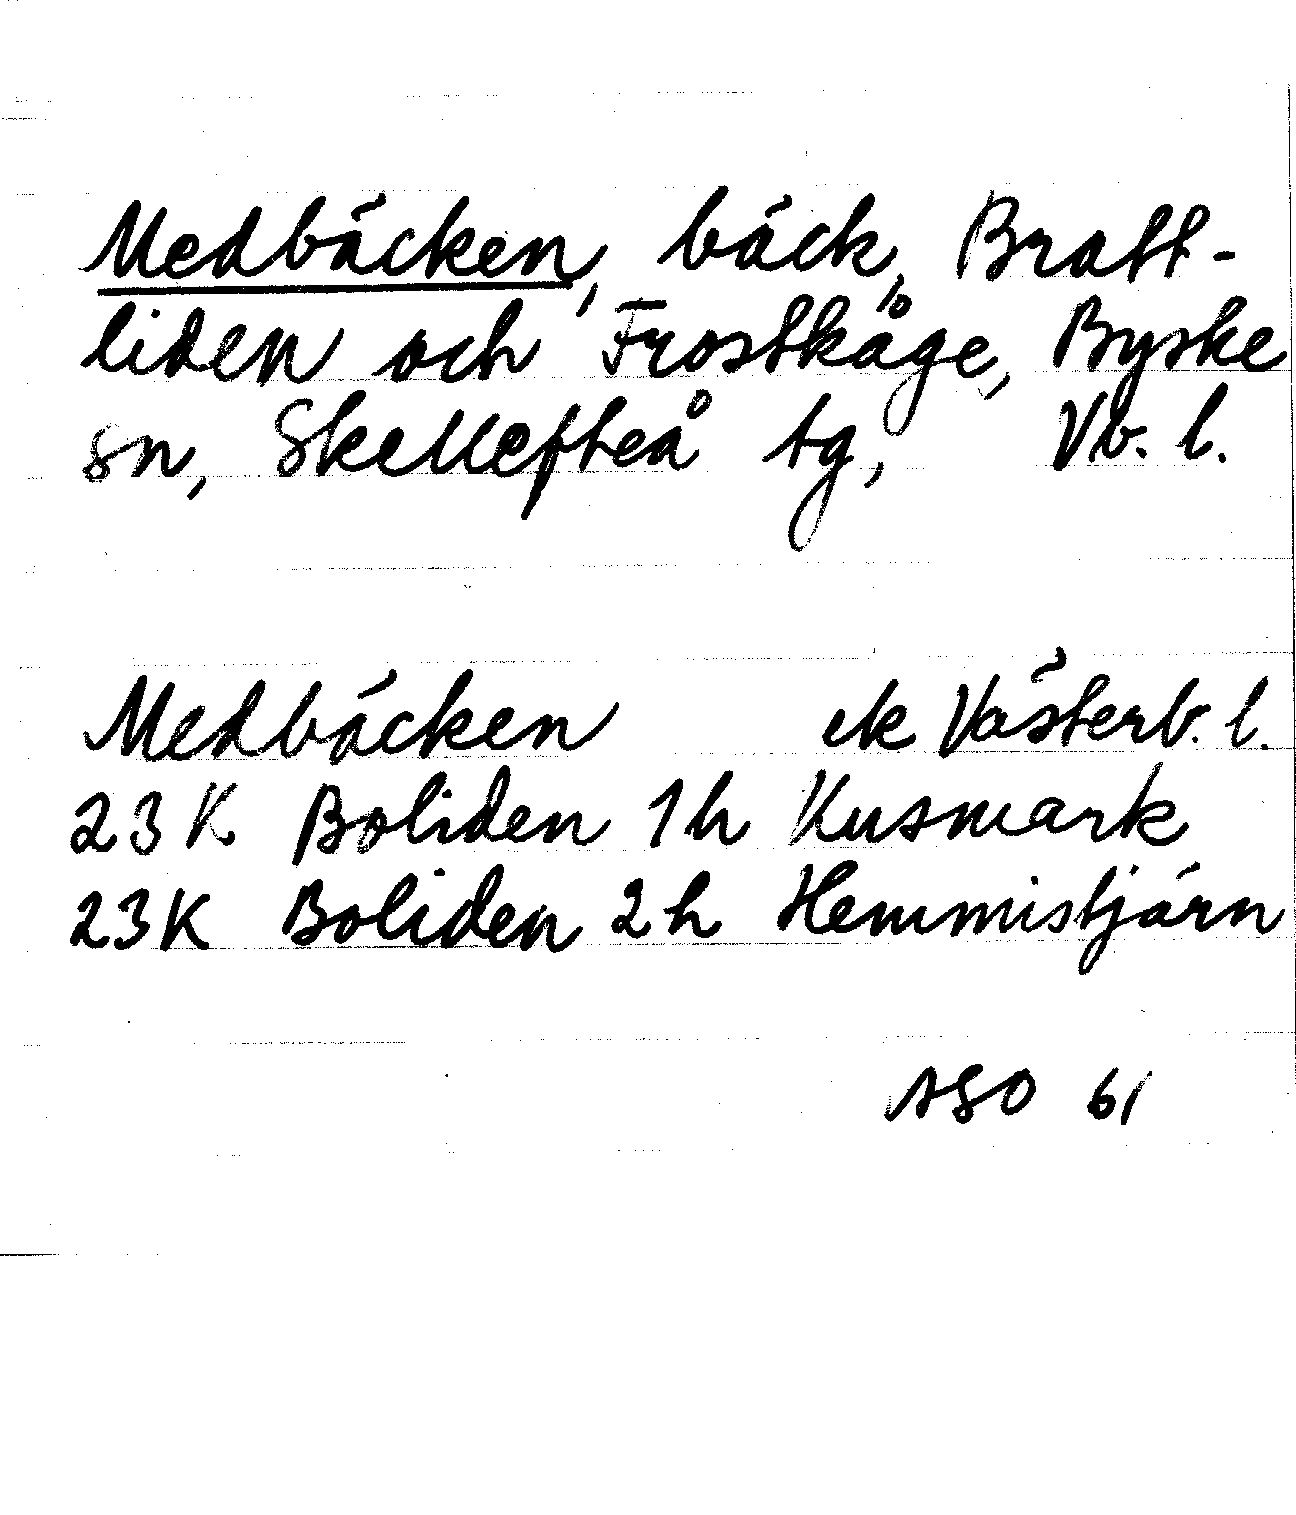 Medbäcken, bäck, Bratt-
liden och Frostkåge, Byske
sn, Skellefteå tg, Vb. l.
Medbäcken ek Västerb. l.
23 K Boliden 1h Kusmark
23K Boliden 2h Hemmistjärn
ASO 61